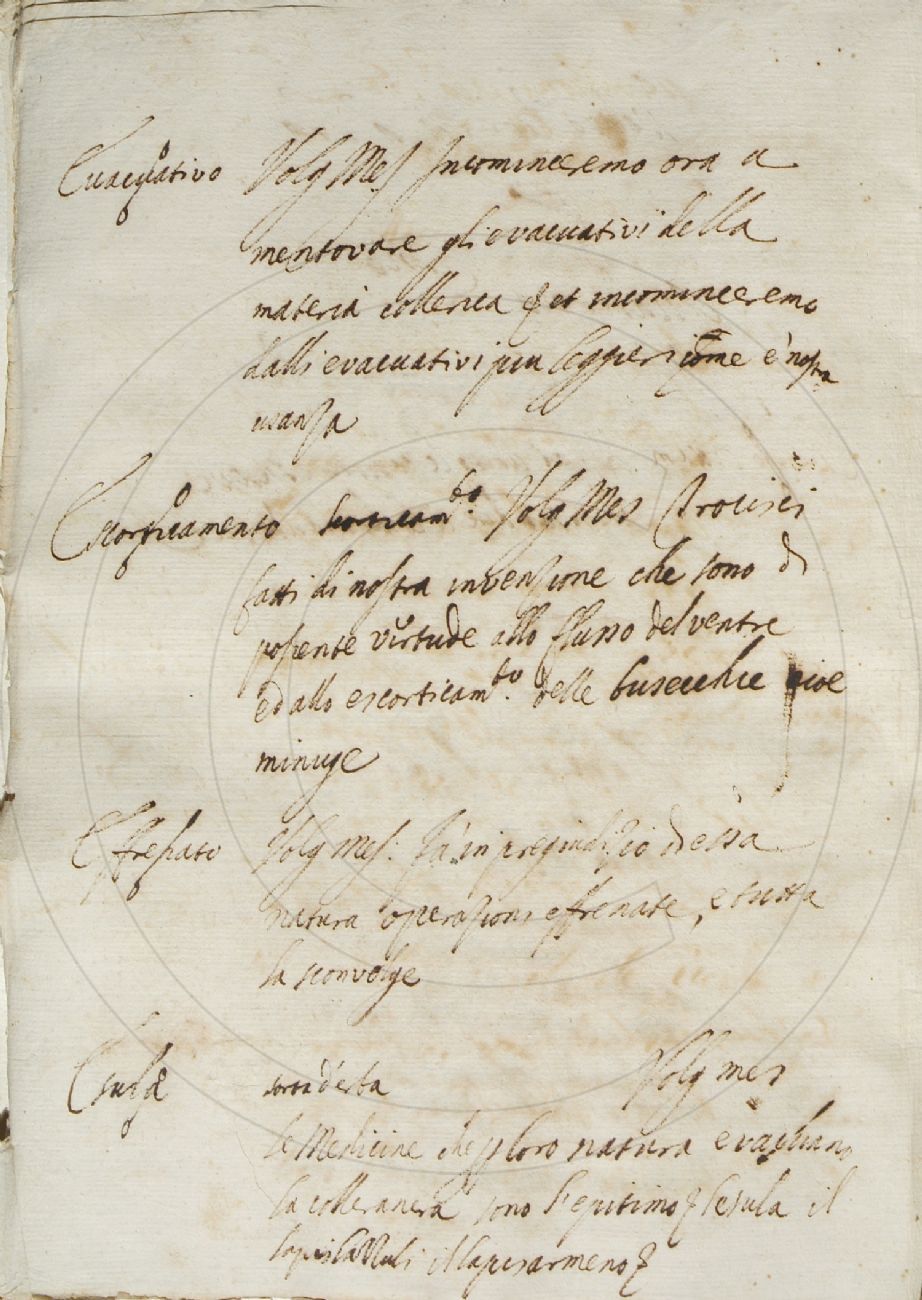 Evacuativo Volg Mes Incominceremo ora a
mentovare gli evacuativi della
materia collerica & et incominceremo
dalli evacuativi piu leggieri come è nostra
usanza
Escorticamento scorticam.to Volg Mes Trocisci
fatti di nostra invenzione che sono di
possente virtude allo flusso del ventre
ed allo escorticam.to delle busecchie cioe
minuge
Effrenato Volg Mes. Fà in pregiudizio d essa
natura operazioni effrenate, e tutta
la sconvolge
Esula sorta d'erba Volg mes
le Medicine che p loro natura evacuano
la collera nera sono l'epitimo & l'esula il
lapislazzuli il lapis armeno &